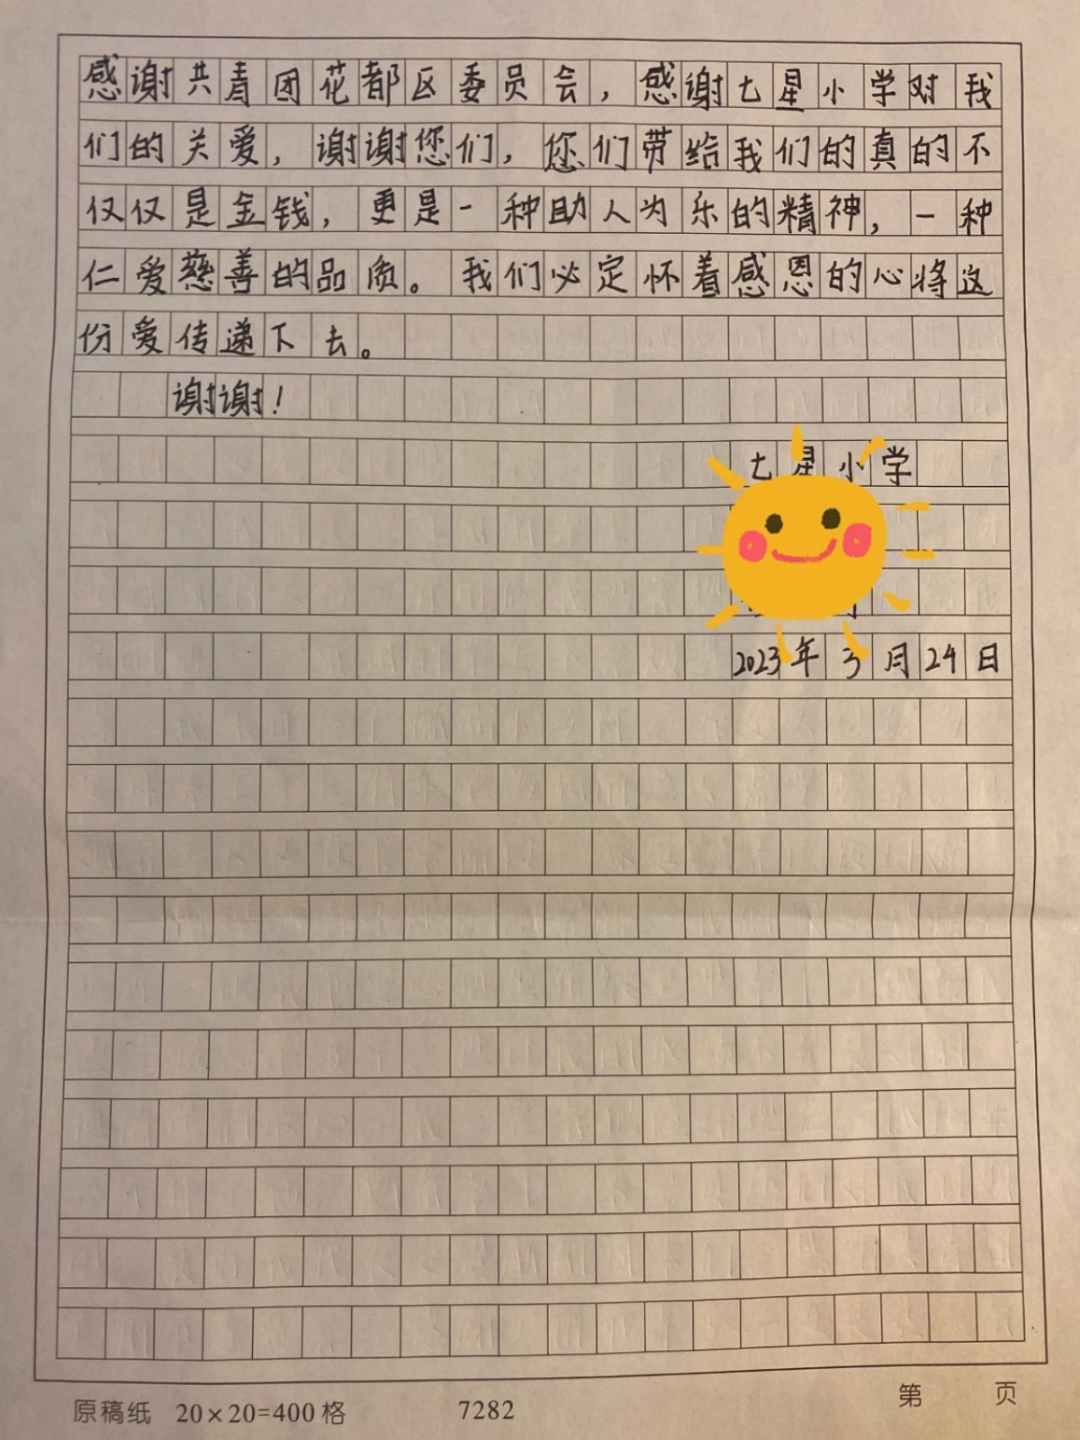 感谢共青团花都区委员会，感谢七星小学对我
们的关爱，谢谢您们，您们带给我们的真的不
仅仅是金钱，更是一种助人为乐的精神，一种
仁爱慈善的品质。我们必定怀着感恩的心将这
份爱传递下去。
谢谢！
七星小学
2023年3月24日
原稿纸 20×20=400格 7282 第 页